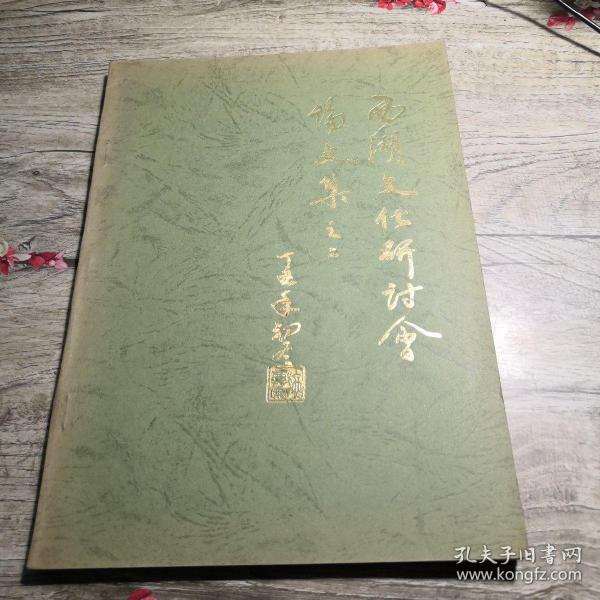 西湖文化研讨會
论文集之二
丁丑年初冬
孔夫子旧书网
www.kongfz.com